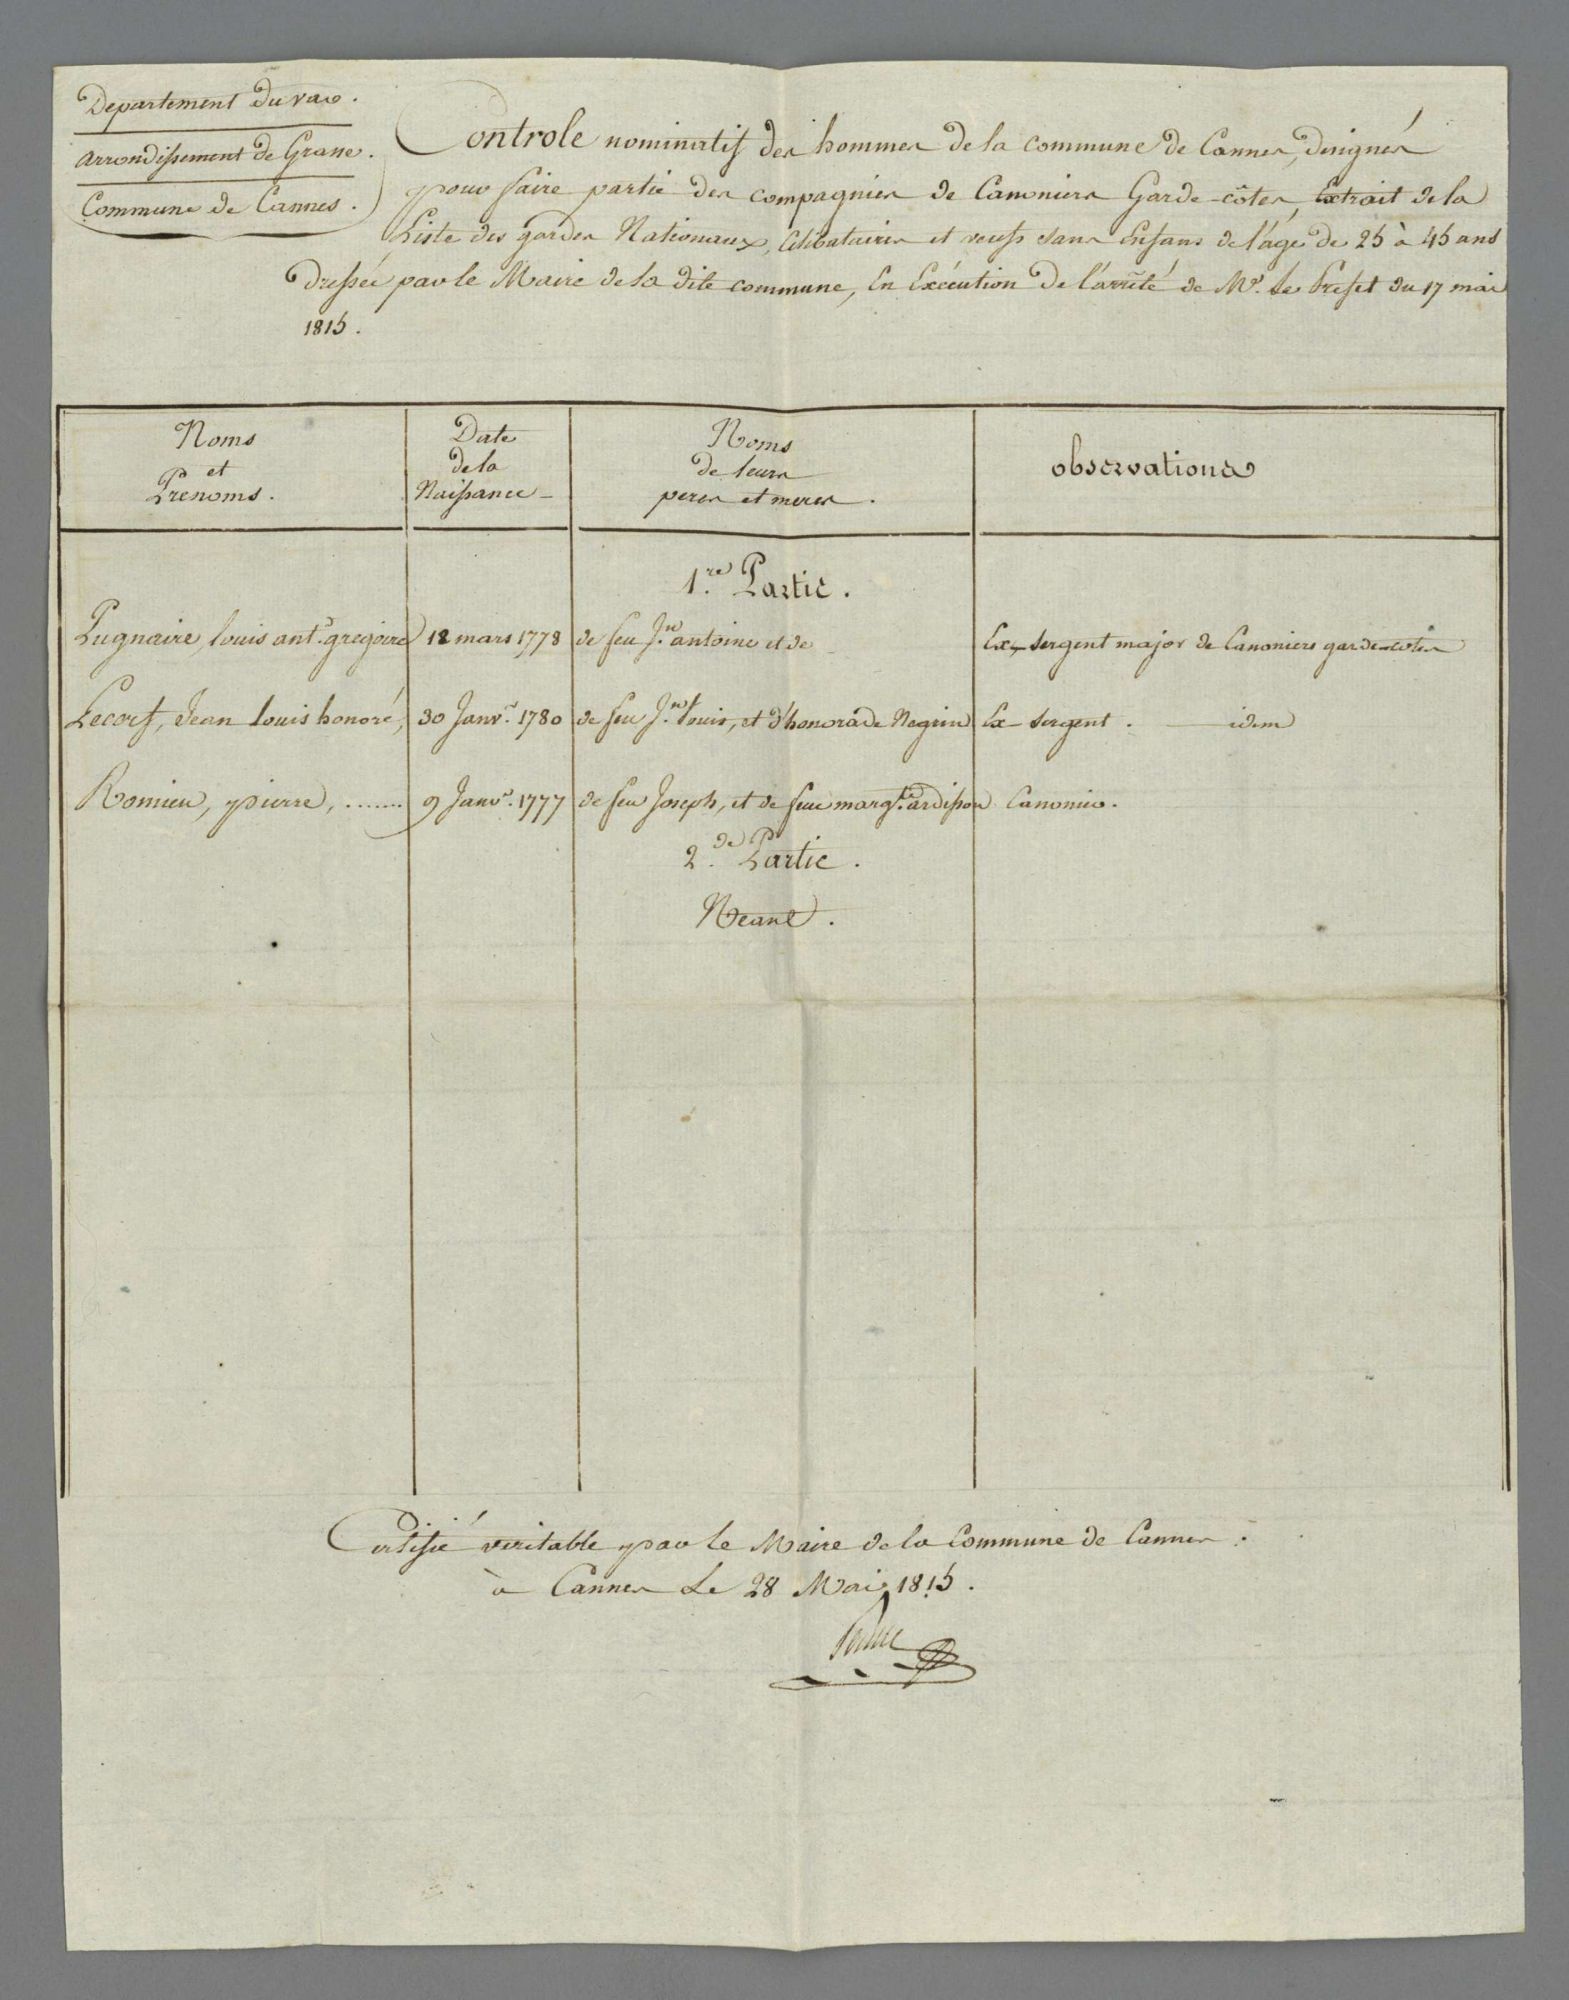 Departement du var.
arrondissement de Grasse.
Commune de Cannes.
Controle nominatif des hommes de la commune de Cannes, designés
pour faire partie des compagnies de Canoniers Garde-côtes, Extrait de la
Liste des gardes Nationaux, Célibataires et veufs sans Enfans de l'âge de 25 à 45 ans
Dressée par le Maire de la dite commune, En Exécution De l'arrêté de Mr. Le Prefet du 17 mai
1815.
Noms
et
Prenoms.
Date
de la
Naissance
Noms
de leurs
peres et meres.
observations
1.re Partie.
Pugnaire, louis ant.e gregoire 12 mars 1778 de feu J.n antoine et de Ex-sergent major de Canoniers garde-cotes
Lecorf, Jean louis honoré, 30 Janv.r 1780 de feu J.n louis, et d'honorade Negrin Ex-sergent. — idem
Romieu, pierre, ....... 9 Janv.r 1777 de feu Joseph, et de feue marg.te ardisson Canonier.
2.de Partie.
Neant.
Certifié veritable par le Maire de la Commune de Cannes.
à Cannes Le 28 Mai 1815.